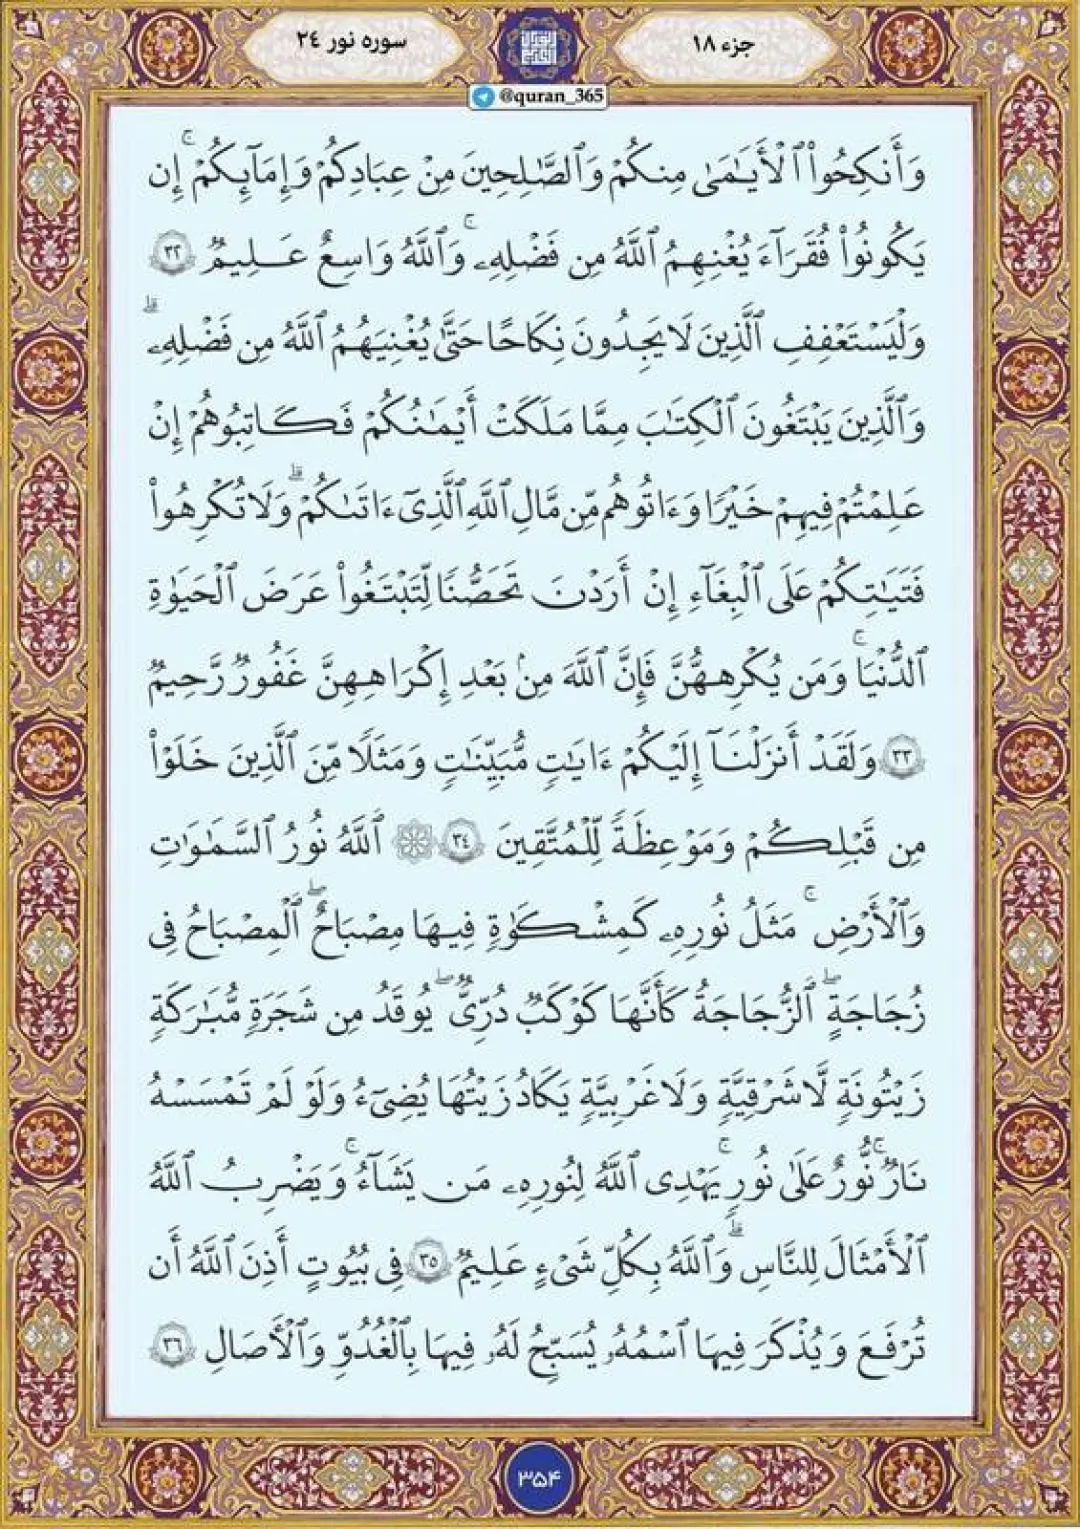 جزء ۱۸
سوره نور ۲۴
@quran_365
وَأَنكِحُوا۟ ٱلْأَيَـٰمَىٰ مِنكُمْ وَٱلصَّـٰلِحِينَ مِنْ عِبَادِكُمْ وَإِمَآئِكُمْ ۚ إِن
يَكُونُوا۟ فُقَرَآءَ يُغْنِهِمُ ٱللَّهُ مِن فَضْلِهِۦ ۗ وَٱللَّهُ وَٰسِعٌ عَلِيمٌ ۝٣٢
وَلْيَسْتَعْفِفِ ٱلَّذِينَ لَا يَجِدُونَ نِكَاحًا حَتَّىٰ يُغْنِيَهُمُ ٱللَّهُ مِن فَضْلِهِۦ ۗ
وَٱلَّذِينَ يَبْتَغُونَ ٱلْكِتَـٰبَ مِمَّا مَلَكَتْ أَيْمَـٰنُكُمْ فَكَاتِبُوهُمْ إِنْ
عَلِمْتُمْ فِيهِمْ خَيْرًا وَءَاتُوهُم مِّن مَّالِ ٱللَّهِ ٱلَّذِىٓ ءَاتَىٰكُمْ ۚ وَلَا تُكْرِهُوا۟
فَتَيَـٰتِكُمْ عَلَى ٱلْبِغَآءِ إِنْ أَرَدْنَ تَحَصُّنًا لِّتَبْتَغُوا۟ عَرَضَ ٱلْحَيَوٰةِ
ٱلدُّنْيَا ۚ وَمَن يُكْرِههُّنَّ فَإِنَّ ٱللَّهَ مِنۢ بَعْدِ إِكْرَٰهِهِنَّ غَفُورٌ رَّحِيمٌ
۝٣٣ وَلَقَدْ أَنزَلْنَآ إِلَيْكُمْ ءَايَـٰتٍ مُّبَيِّنَـٰتٍ وَمَثَلًا مِّنَ ٱلَّذِينَ خَلَوْا۟
مِن قَبْلِكُمْ وَمَوْعِظَةً لِّلْمُتَّقِينَ ۝٣٤ ۞ ٱللَّهُ نُورُ ٱلسَّمَـٰوَٰتِ
وَٱلْأَرْضِ ۚ مَثَلُ نُورِهِۦ كَمِشْكَوٰةٍ فِيهَا مِصْبَاحٌ ۖ ٱلْمِصْبَاحُ فِى
زُجَاجَةٍ ۖ ٱلزُّجَاجَةُ كَأَنَّهَا كَوْكَبٌ دُرِّىٌّ ۖ يُوقَدُ مِن شَجَرَةٍ مُّبَـٰرَكَةٍ
زَيْتُونَةٍ لَّا شَرْقِيَّةٍ وَلَا غَرْبِيَّةٍ يَكَادُ زَيْتُهَا يُضِىٓءُ وَلَوْ لَمْ تَمْسَسْهُ
نَارٌ ۚ نُّورٌ عَلَىٰ نُورٍ ۚ يَهْدِى ٱللَّهُ لِنُورِهِۦ مَن يَشَآءُ ۚ وَيَضْرِبُ ٱللَّهُ
ٱلْأَمْثَـٰلَ لِلنَّاسِ ۗ وَٱللَّهُ بِكُلِّ شَىْءٍ عَلِيمٌ ۝٣٥ فِى بُيُوتٍ أَذِنَ ٱللَّهُ أَن
تُرْفَعَ وَيُذْكَرَ فِيهَا ٱسْمُهُۥ يُسَبِّحُ لَهُۥ فِيهَا بِٱلْغُدُوِّ وَٱلْـَٔاصَالِ ۝٣٦
۳۵۴